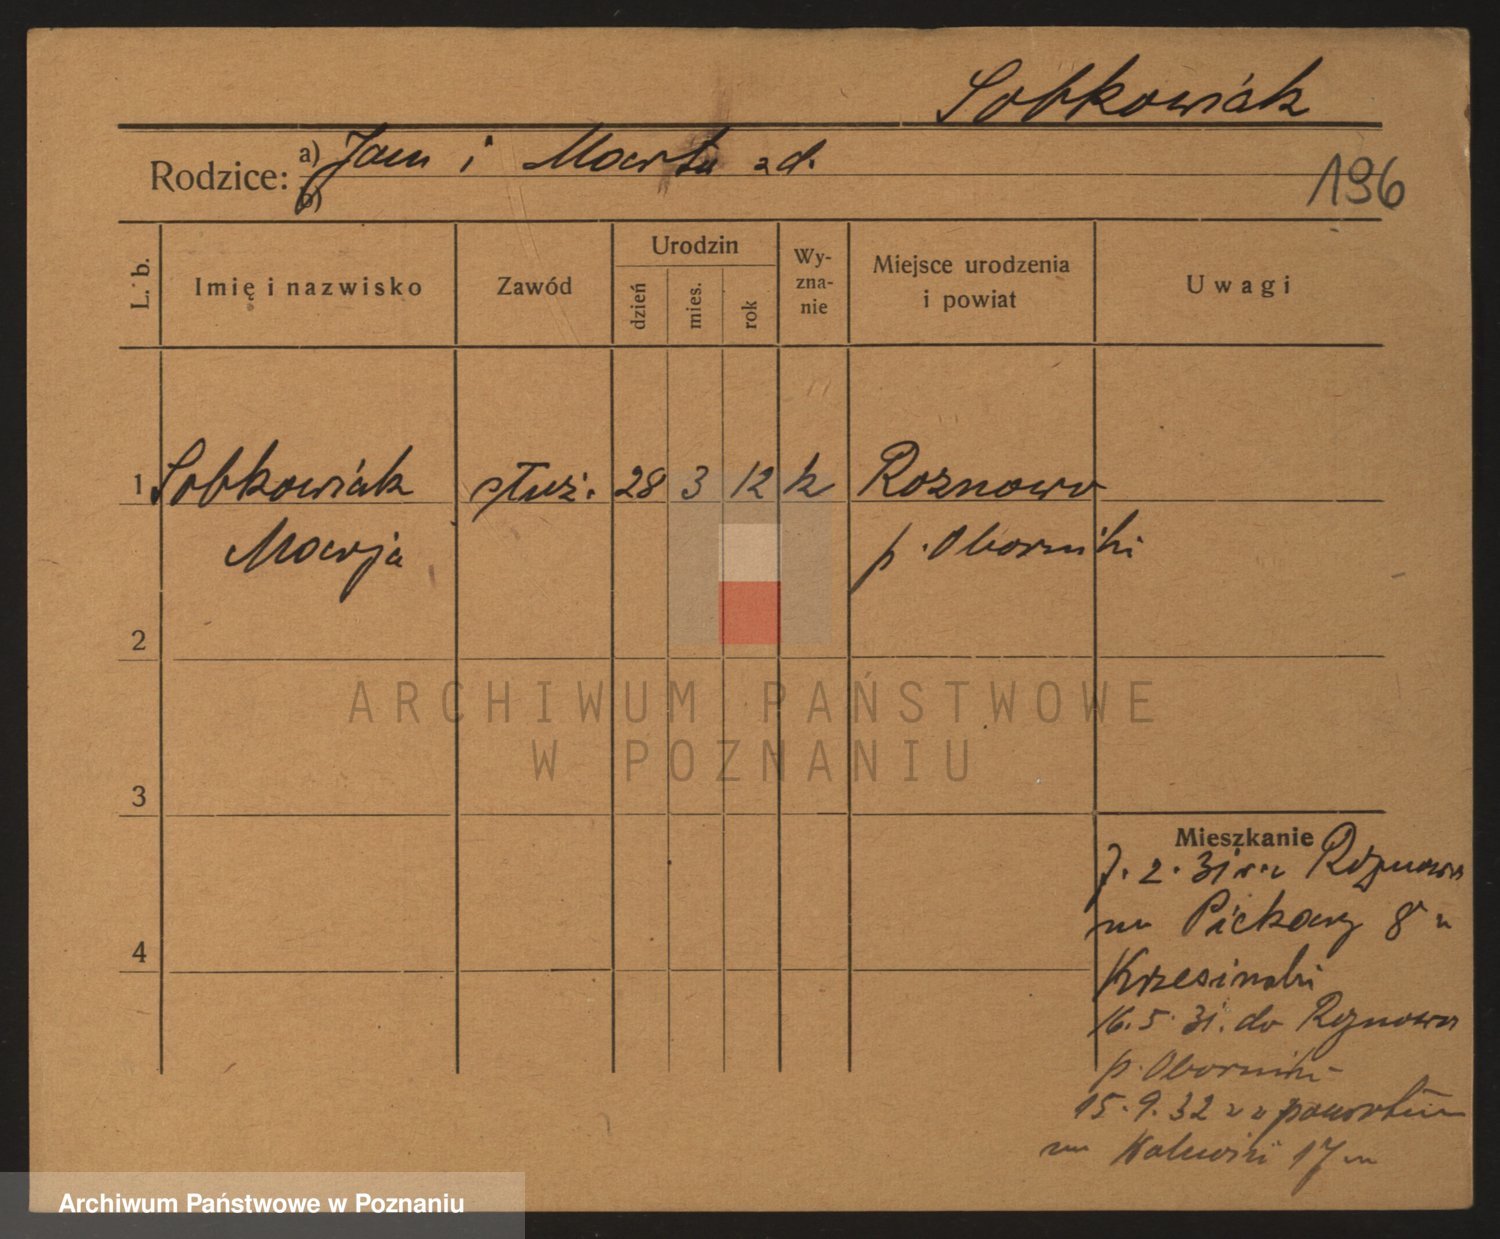 Sobkowiak
Rodzice: a) Jan i Marta zd.
b)
196
L. b.
Imię i nazwisko
Zawód
Urodzin
dzień
mies.
rok
Wy-
zna-
nie
Miejsce urodzenia
i powiat
Uwagi
1 Sobkowiak służ. 28 3 12 k Rożnowo
Marja p. Oborniki
2
ARCHIWUM PAŃSTWOWE
W POZNANIU
3
Mieszkanie
7. 2. 31 Rożnowa
na Piekary 8
4
Krzesinski
16. 5. 31. do Rożnowa
p. Oborniki
15. 9. 32 z powrotem
na 17
Archiwum Państwowe w Poznaniu